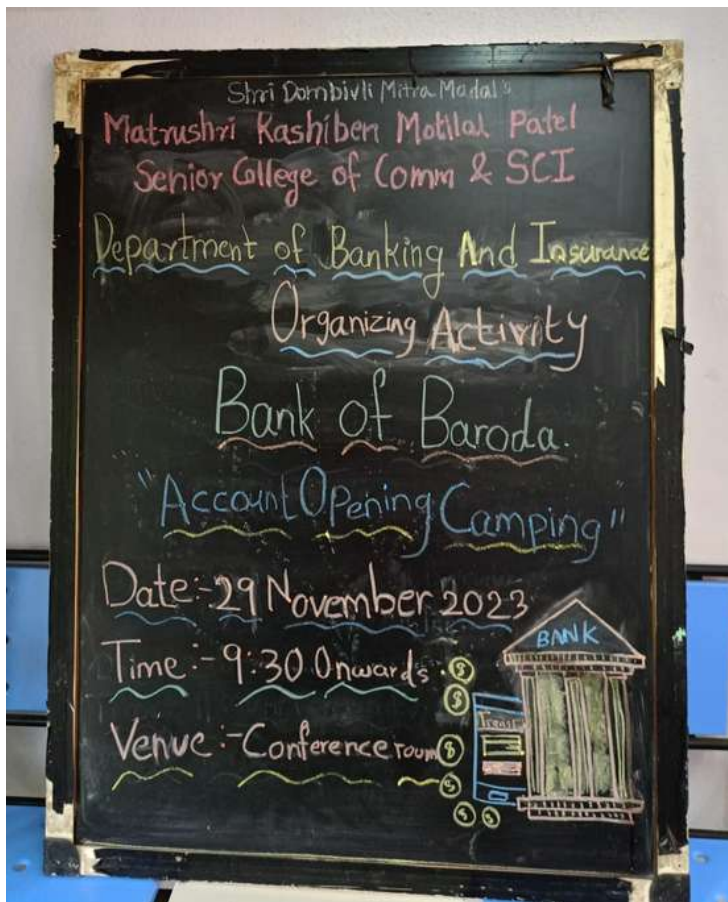 Shri Dombivli Mitra Madal's
Matrushri Kashiben Motilal Patel
Senior College of Comm & SCI
Department of Banking And Insurance
Organizing Activity
Bank of Baroda.
"Account Opening Camping"
Date:- 29 November 2023
Time:- 9:30 Onwards.
Venue:- Conference roum
BANK
$
$
$
$
$ $